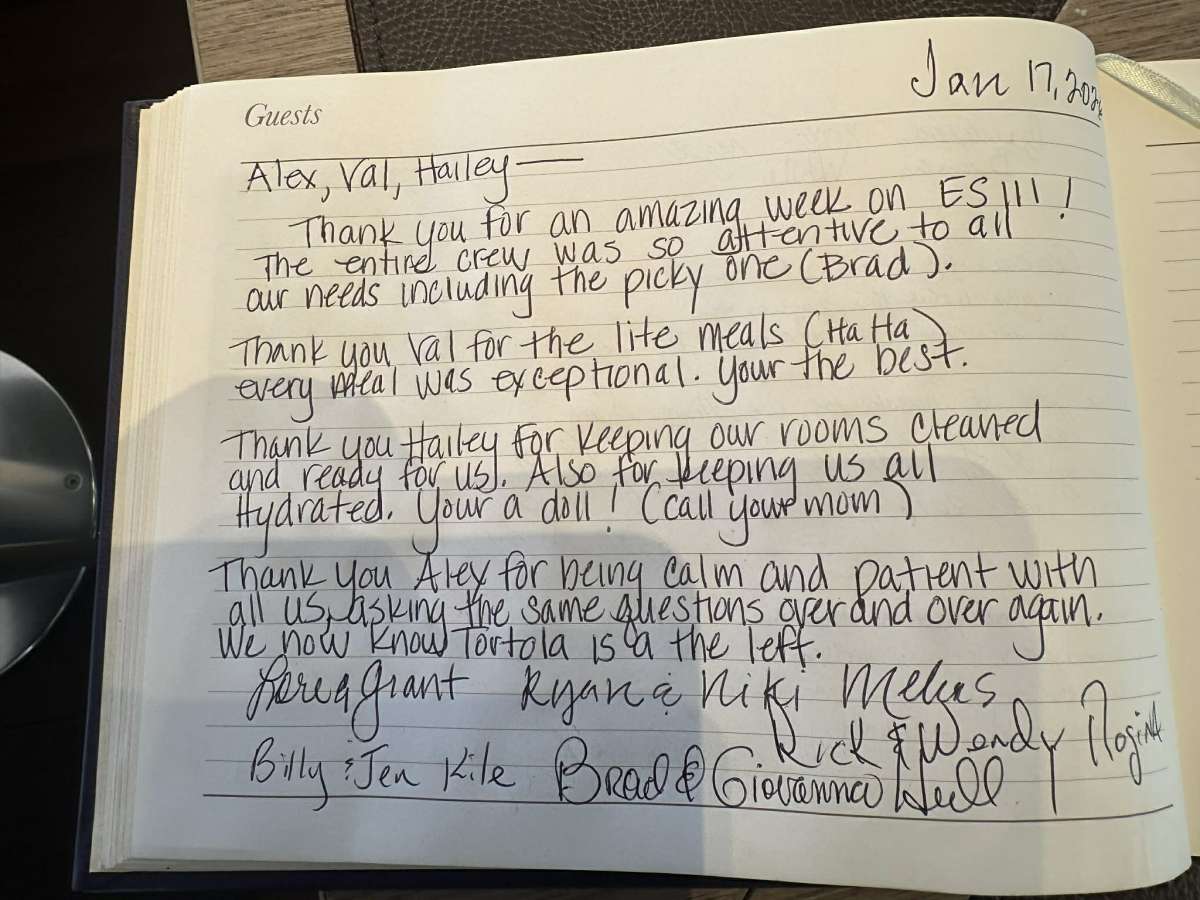 Jan 17, 202
Guests
Alex, Val, Hailey —
Thank you for an amazing week on ES III !
The entire crew was so attentive to all
our needs including the picky one (Brad).
Thank you Val for the lite meals (Ha Ha)
every meal was exceptional. Your the best.
Thank you Hailey for keeping our rooms cleaned
and ready for us. Also for keeping us all
Hydrated. Your a doll! (call your mom)
Thank you Alex for being calm and patient with
all us, asking the same questions over and over again.
We now know Tortola is a the left.
Grant Ryan & Niki
Rick & Wendy
Billy & Jen Kile Brad & Giovanna